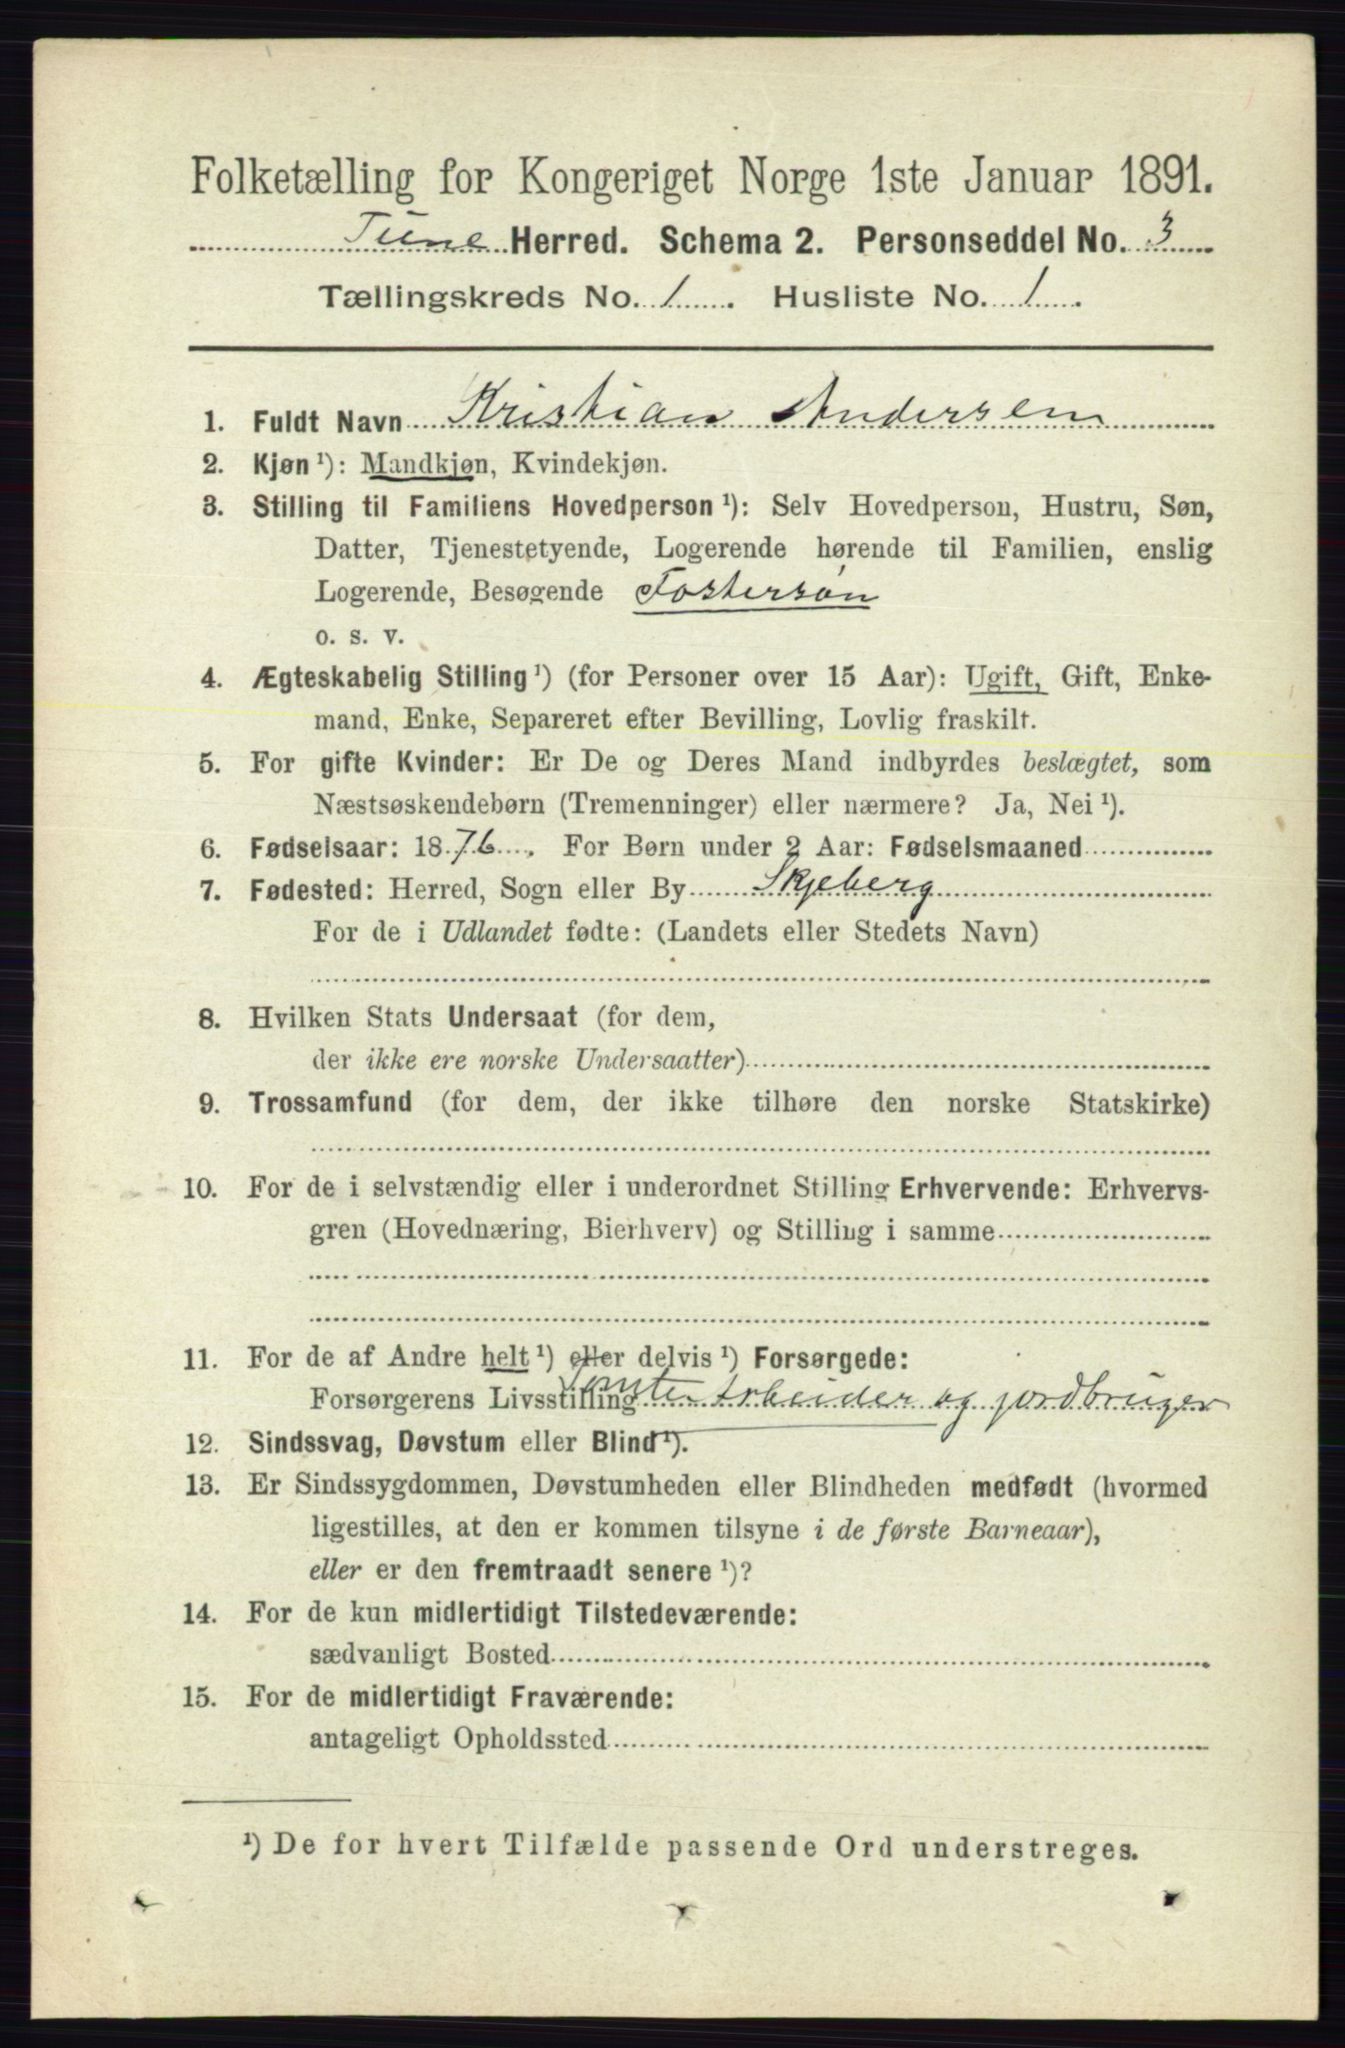 Folketælling for Kongeriget Norge 1ste Januar 1891.
Tune Herred. Schema 2. Personseddel No. 3
Tællingskreds No. 1. Husliste No. 1.
1. Fuldt Navn Kristian Andersen
2. Kjøn ¹): Mandkjøn, Kvindekjøn.
3. Stilling til Familiens Hovedperson ¹): Selv Hovedperson, Hustru, Søn,
Datter, Tjenestetyende, Logerende hørende til Familien, enslig
Logerende, Besøgende Fostersøn
o. s. v.
4. Ægteskabelig Stilling ¹) (for Personer over 15 Aar): Ugift, Gift, Enke-
mand, Enke, Separeret efter Bevilling, Lovlig fraskilt.
5. For gifte Kvinder: Er De og Deres Mand indbyrdes beslægtet, som
Næstsøskendebørn (Tremenninger) eller nærmere? Ja, Nei ¹).
6. Fødselsaar: 1876. For Børn under 2 Aar: Fødselsmaaned
7. Fødested: Herred, Sogn eller By Skjeberg
For de i Udlandet fødte: (Landets eller Stedets Navn)
8. Hvilken Stats Undersaat (for dem,
der ikke ere norske Undersaatter)
9. Trossamfund (for dem, der ikke tilhøre den norske Statskirke)
10. For de i selvstændig eller i underordnet Stilling Erhvervende: Erhvervs-
gren (Hovednæring, Bierhverv) og Stilling i samme
11. For de af Andre helt ¹) eller delvis ¹) Forsørgede:
Forsørgerens Livsstilling Tomtearbeider og jordbruger
12. Sindssvag, Døvstum eller Blind ¹).
13. Er Sindssygdommen, Døvstumheden eller Blindheden medfødt (hvormed
ligestilles, at den er kommen tilsyne i de første Barneaar),
eller er den fremtraadt senere ¹)?
14. For de kun midlertidigt Tilstedeværende:
sædvanligt Bosted
15. For de midlertidigt Fraværende:
antageligt Opholdssted
¹) De for hvert Tilfælde passende Ord understreges.